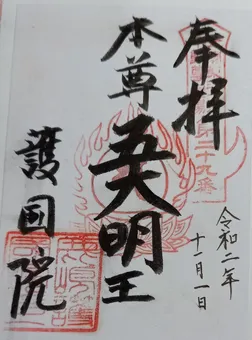 奉拝
第二十九番
令和二年
十一月一日
本尊
五大明王
護国院